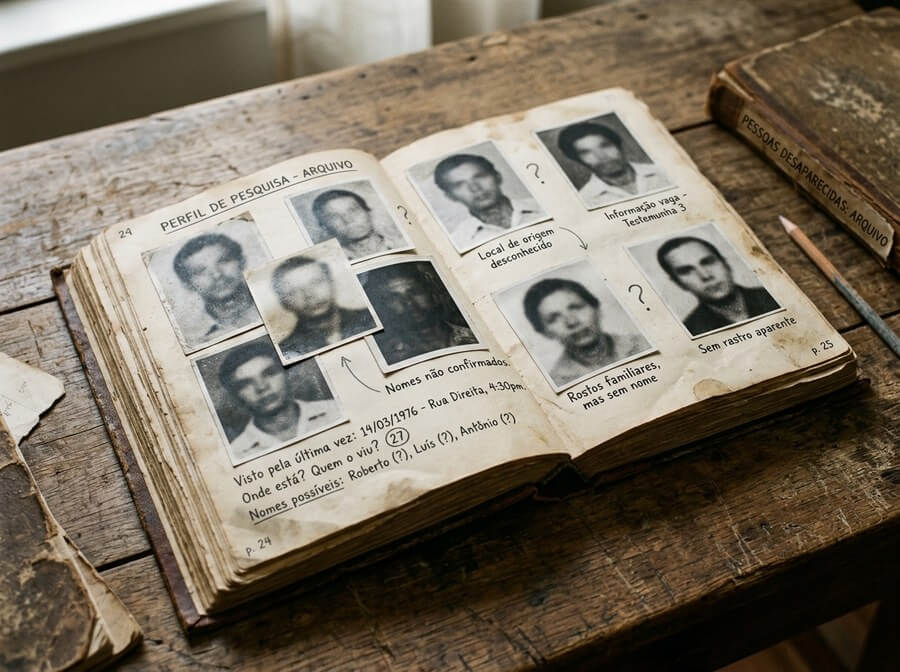 24
PERFIL DE PESQUISA – ARQUIVO
?
Nomes não confirmados.
Visto pela última vez: 14/03/1976 – Rua Direita, 4:30pm.
Onde está? Quem o viu? 27
Nomes possíveis: Roberto (?), Luís (?), Antônio (?)
p. 24
?
Local de origem
desconhecido
Informação vaga –
Testemunha 3
?
Rostos familiares,
mas sem nome
Sem rastro aparente
p. 25
PESSOAS DESAPARECIDAS: ARQUIVO